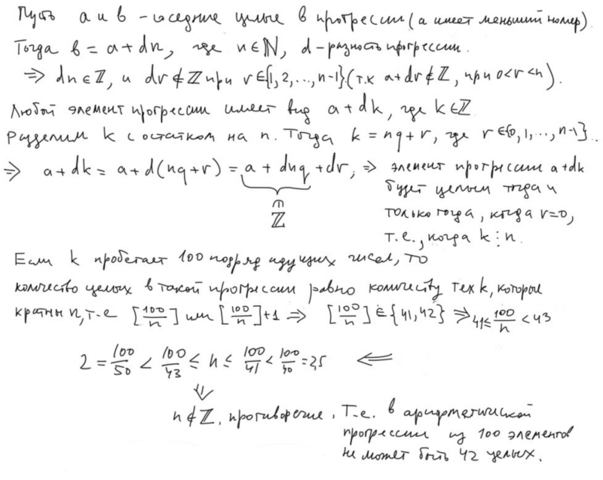 Пусть a и b - соседние целые в прогрессии (a имеет меньший номер).
Тогда b = a + dn, где n∈ℕ, d - разность прогрессии.
⇒ dn∈ℤ, и dr∉ℤ при r∈{1,2,...,n-1} (т.к a+dr∉ℤ, при 0<r<n).
Любой элемент прогрессии имеет вид a+dk, где k∈ℤ.
Разделим k с остатком на n. Тогда k = nq+r, где r∈{0,1,...,n-1}.
⇒ a+dk = a+d(nq+r) = a+dnq+dr, ⇒ элемент прогрессии a+dk
будет целым тогда и
∈
ℤ
только тогда, когда r=0,
т.е., когда k⋮n.
Если k пробегает 100 подряд идущих чисел, то
количество целых в такой прогрессии равно количеству тех k, которые
кратны n, т.е [100/n] или [100/n]+1 ⇒ [100/n]∈{41,42} ⇒ 41≤100/n<43
2 = 100/50 < 100/43 ≤ n ≤ 100/41 < 100/40 = 2,5 ⇐
⇓
n∉ℤ, противоречие. Т.е. в арифметической
прогрессии из 100 элементов
не может быть 42 целых.